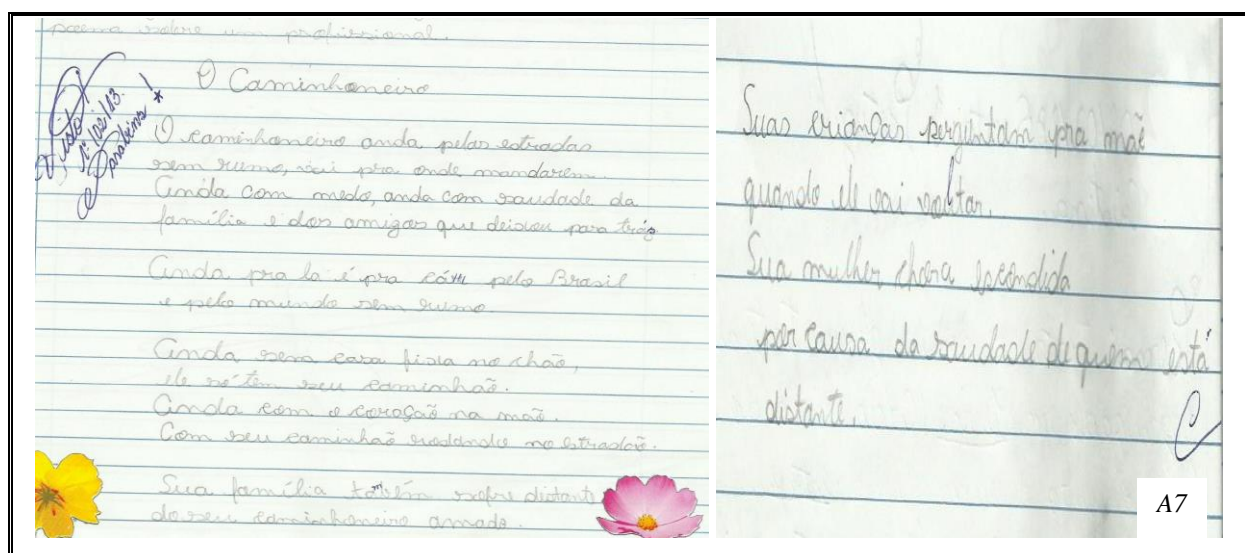 poema sobre um profissional.
Visto
1º/02/13.
Parabéns!
O Caminhoneiro
O caminhoneiro anda pelas estradas
sem rumo, vai pra onde mandarem.
Anda com medo, anda com saudade da
família e dos amigos que deixou para trás
Anda pra la é pra cá pelo Brasil
e pelo mundo sem rumo.
Anda sem casa fixa no chão,
ele só tem seu caminhão.
Anda com o coração na mão.
Com seu caminhão rodando no estradão.
Sua família tabém sofre distante
do seu caminhoneiro amado.
Suas crianças perguntam pra mãe
quando ele vai voltar.
Sua mulher chora escondida
por causa da saudade de quem está
distante.
A7